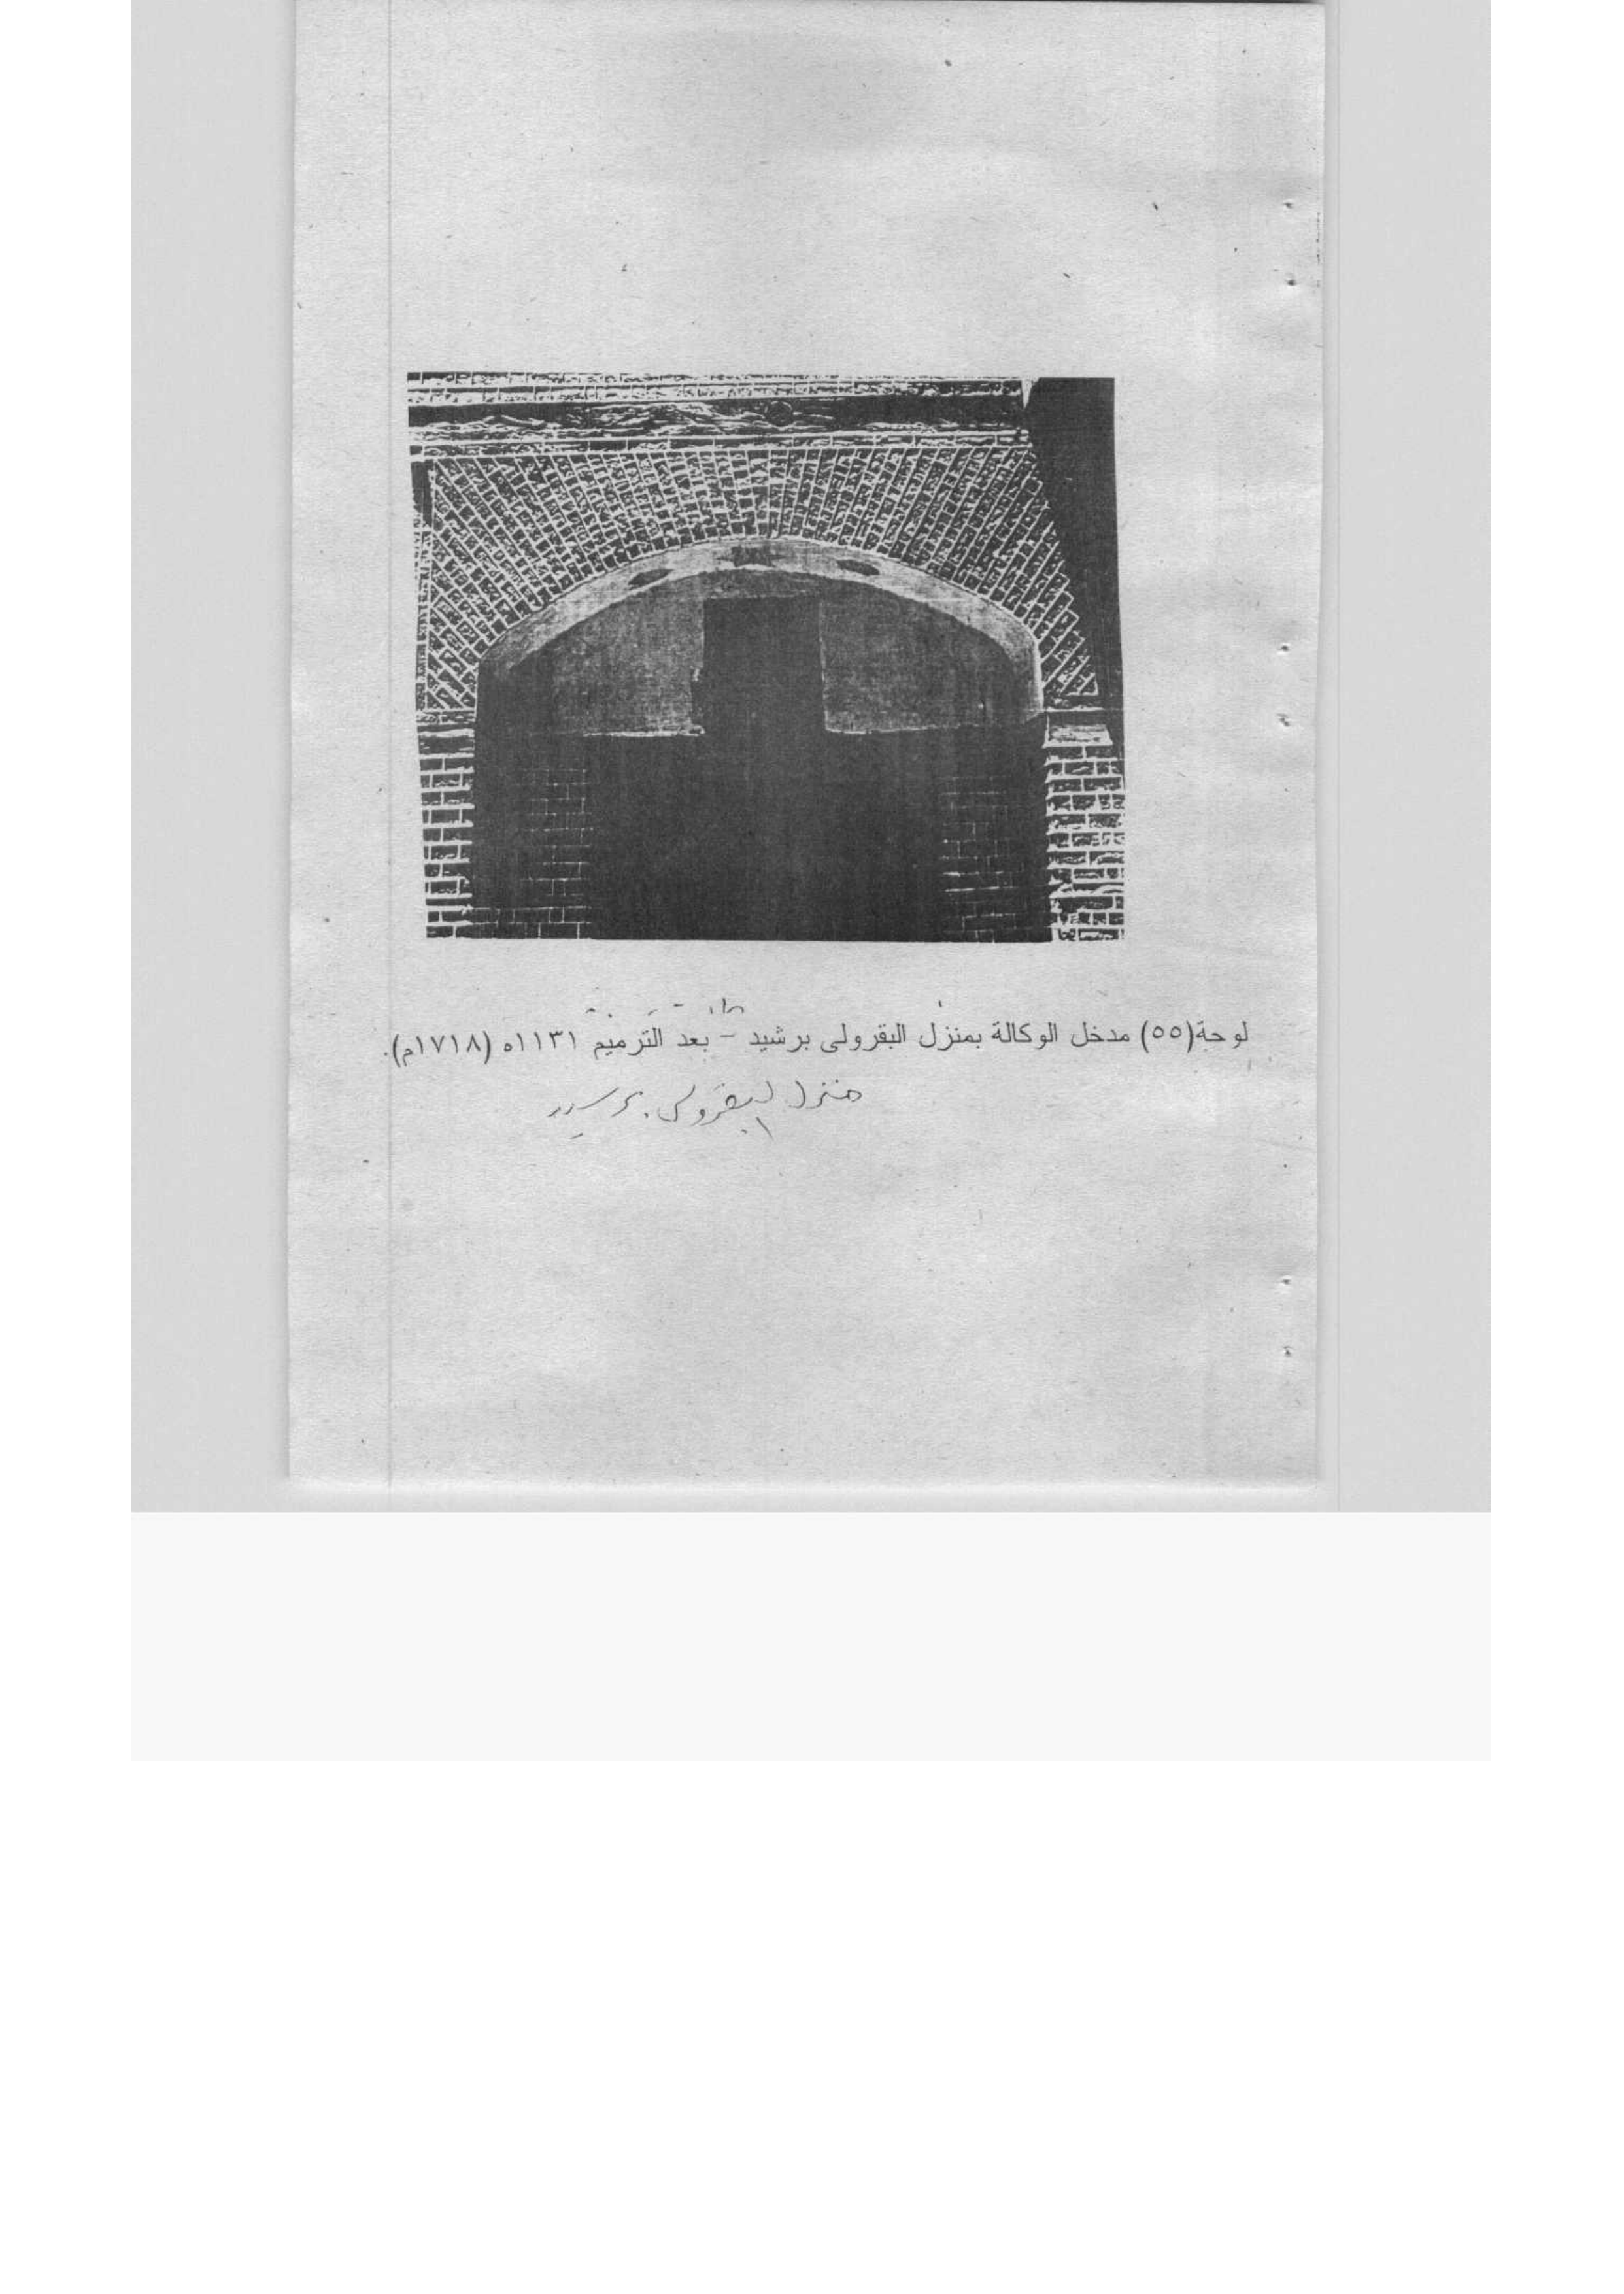 لوحة(٥٥) مدخل الوكالة بمنزل البقرولى برشيد – بعد الترميم ١١٣١ه (١٧١٨م).
منزل البقرولى برشيد